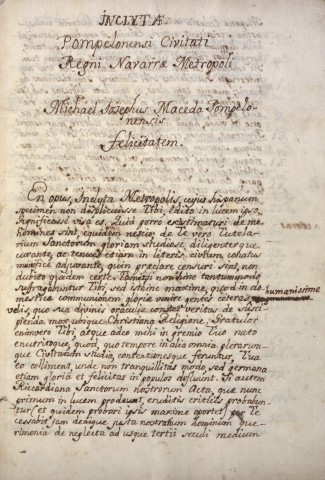 INCLUTÆ
Pompelonensi Civitati
Regni Navarræ Metropoli
Michael Josephus Maceda Pompelo-
nensis
Felicitatem.
En opus, Inclyta Metropolis, cujus hispanum
specimen non displicuisse Tibi, edito in lucem ipso,
significasse visa es. Quid porro existimaturi de me
homines sint, equidem nescio; de Te vero, Tutela-
rium Sanctorum gloriam studiose, diligenterque
curante, ac tenues etiam in literis, civium conatus
munifice adjuvante, quin præclare censuri sint, non
dubito quidem certe. Tametsi non
suffragabuntur Tibi, sed isthinc maxime, quod in do-
mesticæ communionem gloriæ venire gentes ceteras humanissime
velis, quo sua divinis oraculis constet veritas de susci-
pienda, moribusque Christiana Religione. Gratulor
enimvero Tibi, atque adeo mihi in gremio Tuo nato
enutritoque, quod, quo tempore in alia omnia plerarum-
que Civitatum studia, contentionesque feruntur, Tua
eo colliment, unde non tranquillitas modo, sed germana
etiam gloria et felicitas in populos affluunt. Si autem
Riccardiana Sanctorum nostrorum Acta, quæ nunc
primum in lucem prodeunt, eruditis criticis probabun-
tur (et quidem probari ipsis maxime oportet) per Te
cessabit jam denique justa nostratum hominum que-
rimonia de neglecta ad usque tertii seculi medium